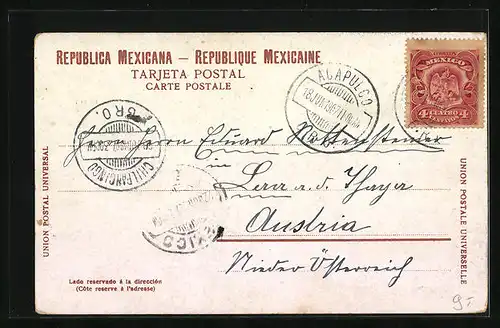 REPUBLICA MEXICANA — REPUBLIQUE MEXICAINE
TARJETA POSTAL
CARTE POSTALE
MEXICO
4 CUATRO 4
CENTAVOS
ACAPULCO
GRO.
CHILPANCINGO
MEXICO
Herrn Herrn Eduard
in
Laa a. d. Thaya
Austria
Nieder Österreich
UNION POSTAL UNIVERSAL
UNION POSTALE UNIVERSELLE
Lado reservado á la dirección
(Côte reserve à l'adresse)
9.-